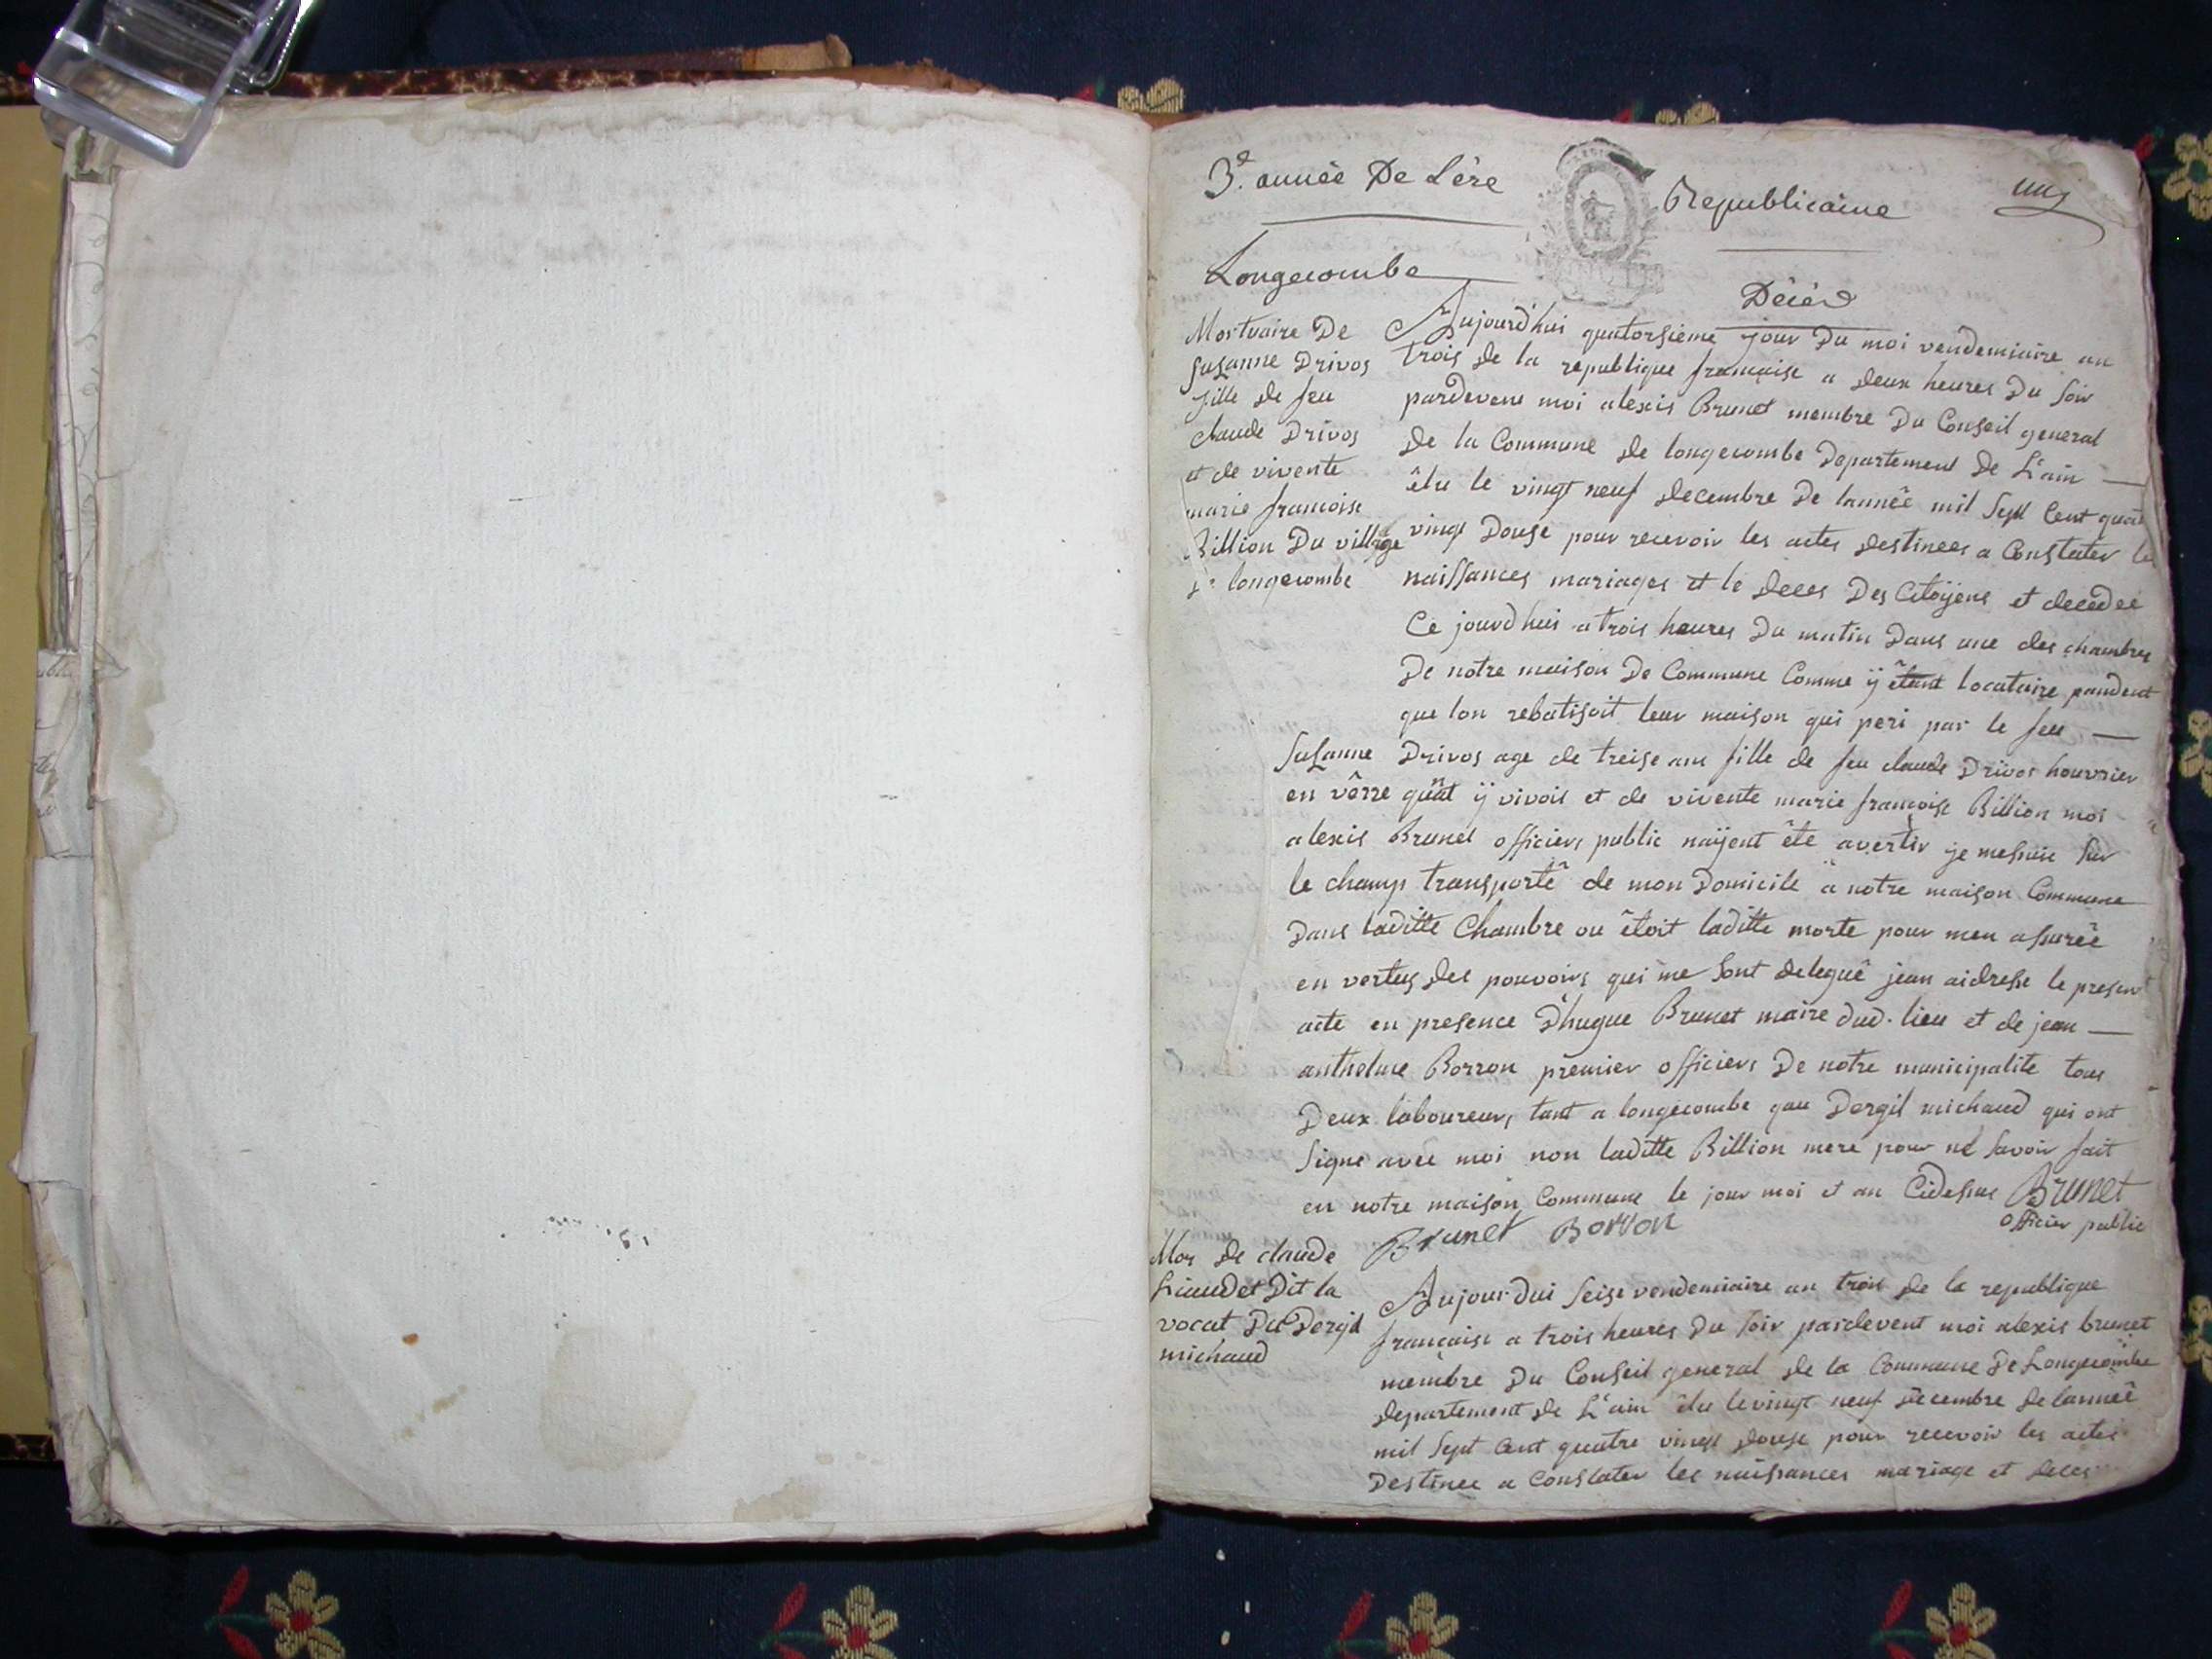 3e. année De Lére
Republicaine
Longecombe
Décéd
Mortuaire De
Susanne Drivos
fille de feu
claude Drivos
et de vivente
marie francoise
Billion Du village
de longecombe
Aujourd'hui quatorsieme jour Du moi vendemiaire an
trois de la republique francaise a deux heures Du soir
pardevene moi alexis Brunet membre Du Conseil general
de la Commune de longecombe Departement De L'ain
élu le vingt neuf decembre De lannéé mil sept Cent quat
vingt Douse pour recevoir les actes destinees a Constater le
naissances mariages et le deces Des Citoÿens et decedeé
Ce jourdhui a trois heures Du matin Dans une des chambres
De notre maison De Commune Comme ÿ étant locataire pandent
que lon rebatisoit leur maison qui peri par le feu
Susanne Drivos age de treise ans fille de feu claude Drivos houvrier
en vêrre quant ÿ vivois et de vivente marie francoise Billion moi
alexis Brunet officiers public naÿent êté avertir je mesuis sur
le champ transporté de mon Domicile a notre maison Commune
Dans laditte Chambre ou êtoit laditte morte pour men assuréé
en vertus des pouvoirs qui me sont delegué jean aidresse le present
acte en presence D'hugue Brunet maire dud. lieu et de jean
anthelme Borron prêmier officiers De notre municipalite tous
Deux laboureurs tant a longecombe qau Dergil michaud qui ont
signe avec moi non laditte Billion mere pour ne savoir fait
en notre maison Commune le jour moi et an Cidessus Brunet
officier public
Brunet Borron
Mor de claude
Liaudet Dit la
vocat Du Dergil
michaud
Aujour dui seise vendemiaire an trois de la republique
française a trois heures Du soir pardevent moi alexis brunet
membre Du Conseil general de la Commune De Longecombe
departement de L'ain élu levingt neuf décembre de lanneé
mil sept Cent quatre vingt douse pour recevoir les actes
Destinee a Constater les naissances mariage et deces